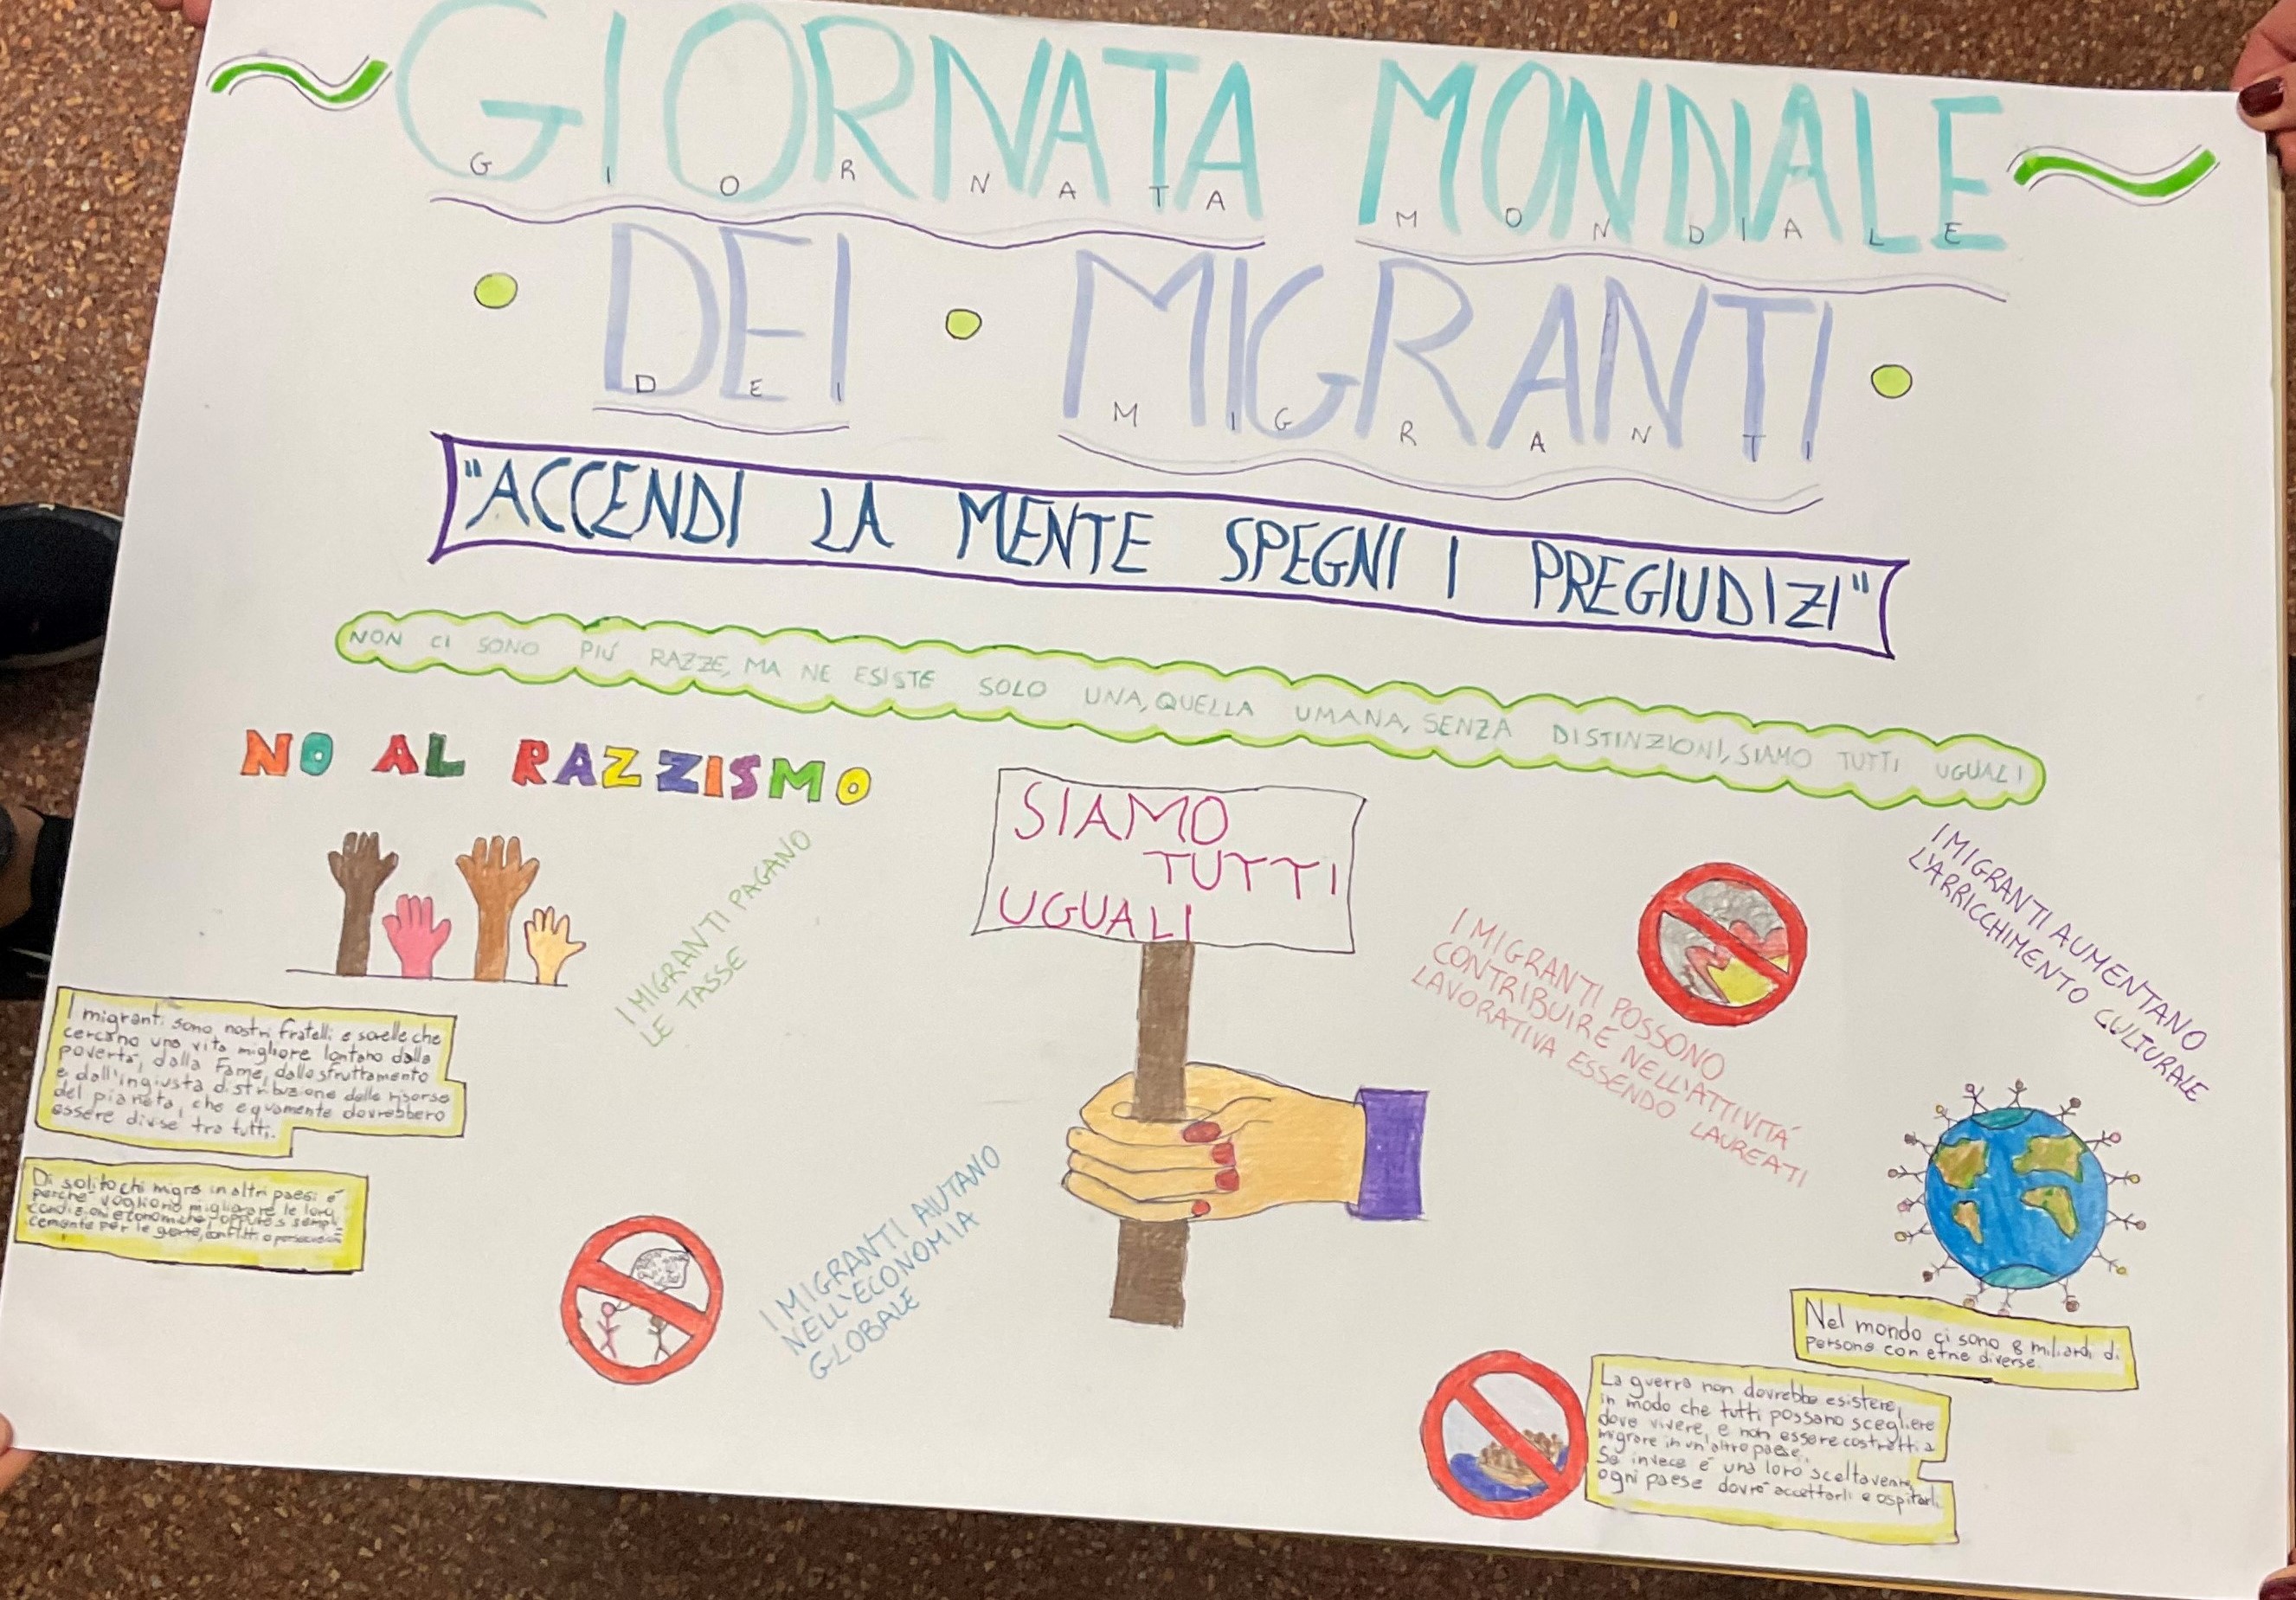 GIORNATA MONDIALE
G I O R N A T A M O N D I A L E
DEI MIGRANTI
D E I M I G R A N T I
"ACCENDI LA MENTE SPEGNI I PREGIUDIZI"
NON CI SONO PIÚ RAZZE, MA NE ESISTE SOLO UNA, QUELLA UMANA, SENZA DISTINZIONI, SIAMO TUTTI UGUALI
NO AL RAZZISMO
I MIGRANTI PAGANO
LE TASSE
I migranti sono nostri fratelli e sorelle che
cercano una vita migliore lontano dalla
povertá, dalla fame, dallo sfruttamento
e dall'ingiusta distribuzione delle risorse
del pianeta, che equamente dovrebbero
essere divise tra tutti.
Di solito chi migra in altri paesi é
perché vogliono migliorare le loro
condizioni economiche, oppure sempli
cemente per le guerre, conflitti o persecuzioni
I MIGRANTI AIUTANO
NELL'ECONOMIA
GLOBALE
SIAMO
TUTTI
UGUALI
I MIGRANTI POSSONO
CONTRIBUIRE NELL'ATTIVITÁ
LAVORATIVA ESSENDO LAUREATI
I MIGRANTI AUMENTANO
L'ARRICCHIMENTO CULTURALE
Nel mondo ci sono 8 miliardi di
persone con etnie diverse.
La guerra non dovrebbe esistere,
in modo che tutti possano scegliere
dove vivere, e non essere costretti a
migrare in un'altro paese.
Se invece é una loro scelta venire,
ogni paese dovrá accettarli e ospitarli.